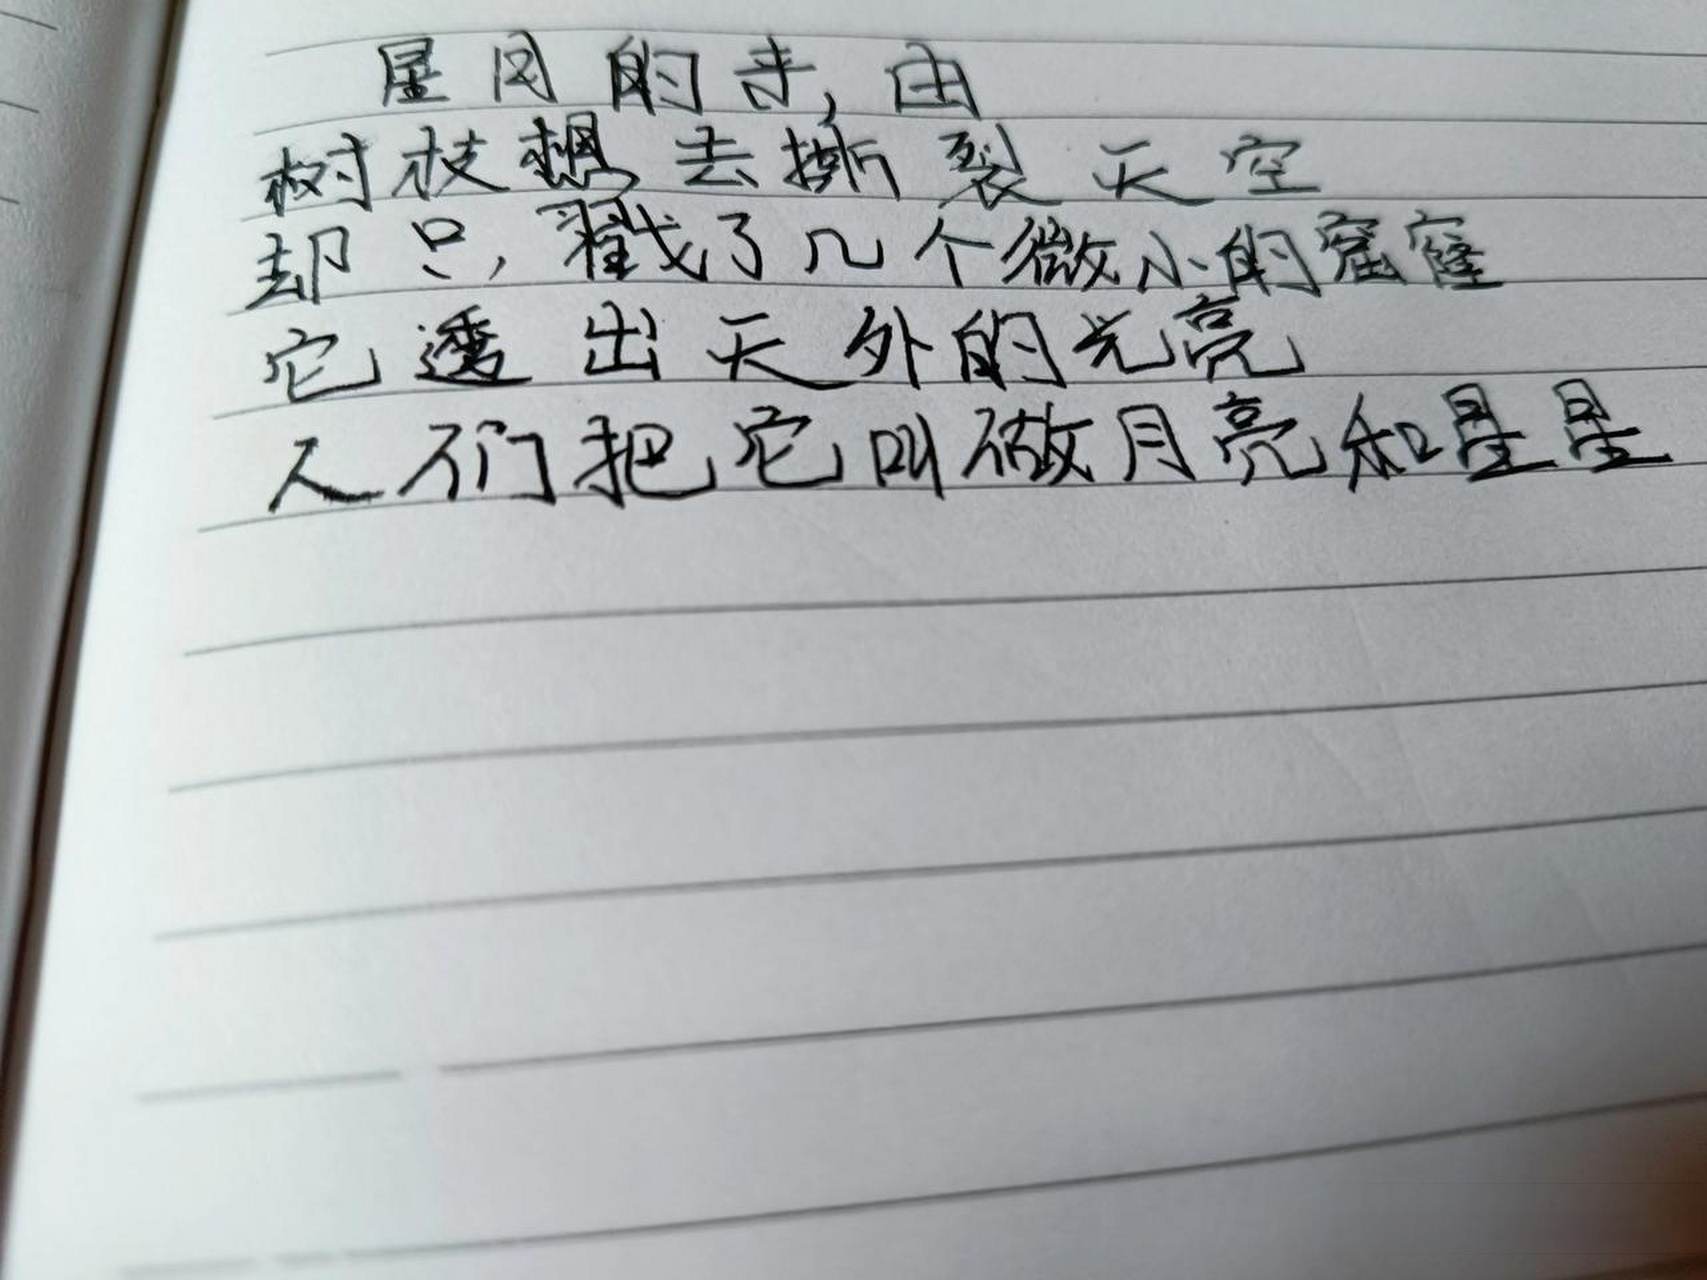 星月的来由
树枝想去撕裂天空
却只戳了几个微小的窟窿
它透出天外的光亮
人们把它叫做月亮和星星